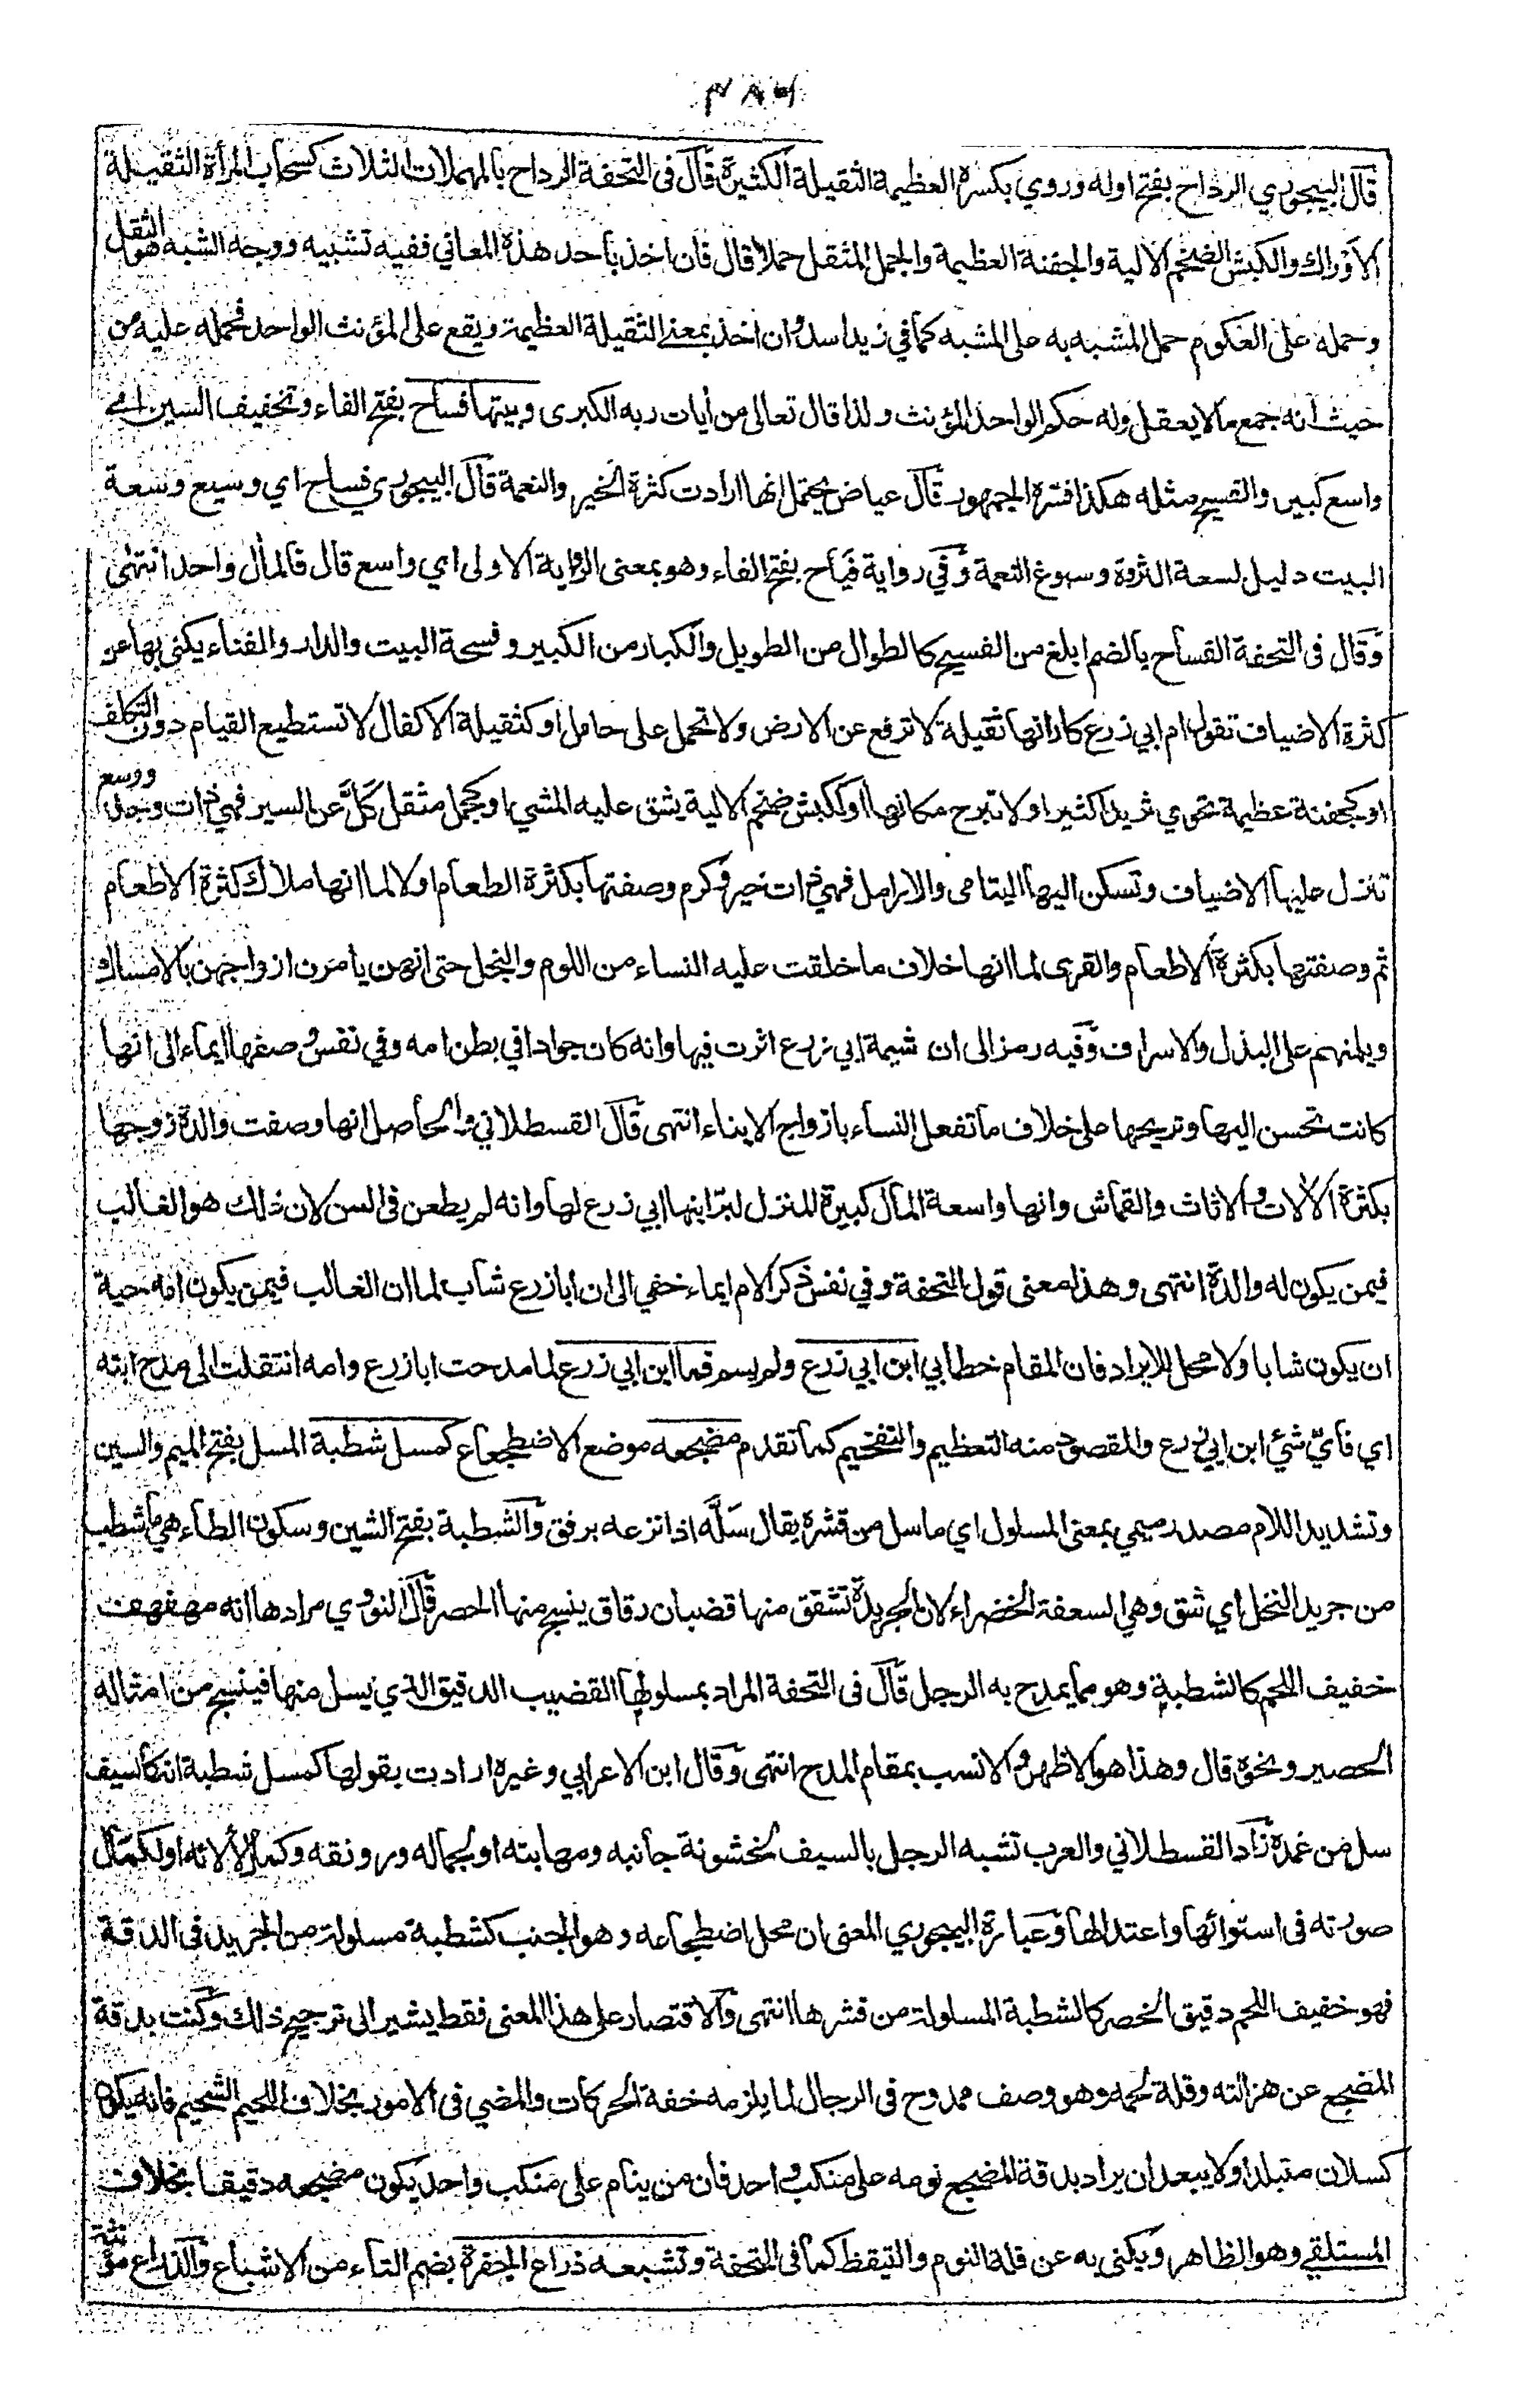 ٣٨٦
قال البيجوري الرداح بفتح اوله وروي بكسره العظيمة الثقيلة الكثيرة قال في التحفة الرداح بالمهملات الثلاث كسحاب المرأة الثقيلة
الاوراك والكبش الضخم الالية والجفنة العظيمة والجمل المثقل حملا قال فان اخذ باحد هذه المعاني ففيه تشبيه ووجه الشبه هو الثقل
وحمله على العكوم حمل المشبه به على المشبه كما في زيد اسد وان اخذ بمعنى الثقيلة العظيمة ويقع على المؤنث الواحد فحمله عليه من
حيث انه جمع ما لا يعقل وله حكم الواحد المؤنث ولذا قال تعالى من أيات ربه الكبرى وبيتها فساح بفتح الفاء وتخفيف السين اي
واسع كبير والفسيح مثله هكذا فسره الجمهور قال عياض يحتمل انها ارادت كثرة الخير والنعمة قال البيجوري فساح اي وسيع وسعة
البيت دليل لسعة الثروة وسبوغ النعمة وفي رواية فياح بفتح الفاء وهو بمعنى الرواية الاولى اي واسع قال فالمأل واحد انتهى
وقال في التحفة الفساح بالضم ابلغ من الفسيح كالطوال من الطويل والكبار من الكبير وفسحة البيت والدار والفناء يكنى بها عن
كثرة الاضياف تقول ام ابي زرع كأنها ثقيلة لا ترفع عن الارض ولا تحمل على حامل او كثقيلة الاكفال لا تستطيع القيام دون التكلف
او كجفنة عظيمة تحوي ثريدا كثيرا ولا تبرح مكانها او ككبش ضخم الالية يشق عليه المشي او كجمل مثقل كَلَّ عن السير فهي ذات وجد ووسع
تنزل عليها الاضياف وتسكن اليها اليتامى والارامل فهي ذات خير وكرم وصفتها بكثرة الطعام اولا لما انها ملاك كثرة الاطعام
ثم وصفتها بكثرة الاطعام والقرى لما انها خلاف ما خلقت عليه النساء من اللوم والبخل حتى انهن يامرن ازواجهن بالامساك
ويلمنهم على البذل والاسراف وفيه رمز الى ان شيمة ابي زرع اثرت فيها وانه كان جوادا في بطن امه وفي نفس وصفها ايماء الى انها
كانت تحسن اليها وتريحها على خلاف ما تفعل النساء بازواج الابناء انتهى قال القسطلاني والحاصل انها وصفت والدة زوجها
بكثرة الألات والاثاث والقماش وانها واسعة المال كبيرة المنزل لبر ابنها ابي زرع لها وانه لم يطعن في السن لان ذلك هو الغالب
فيمن يكون له والدة انتهى وهذا معنى قول التحفة وفي نفس ذكر الام ايماء خفي الى ان ابا زرع شاب لما ان الغالب فيمن يكون امه حية
ان يكون شابا ولا محل للايراد فان المقام خطابي ابن ابي زرع ولم يسم فما ابن ابي زرع لما مدحت ابا زرع وامه انتقلت الى مدح ابنه
اي فأيّ شئ ابن ابي زرع والمقصود منه التعظيم والتفخيم كما تقدم مضجعه موضع الاضطجاع كمسل شطبة المسل بفتح الميم والسين
وتشديد اللام مصدر ميمي بمعنى المسلول اي ما سل من قشره يقال سَلَّه اذا نزعه برفق والشطبة بفتح الشين وسكون الطاء هي ما شطب
من جريد النخل اي شق وهي السعفة الخضراء لان الجريدة تشقق منها قضبان رقاق ينسج منها الحصر قال النووي مرادها انه مهفهف
خفيف اللحم كالشطبة وهو مما يمدح به الرجل قال في التحفة المراد بمسلولها القضيب الدقيق الذي يسل منها فينسج من امثاله
الحصير ونحوه قال وهذا هو الاظهر والانسب بمقام المدح انتهى وقال ابن الاعرابي وغيره ارادت بقولها كمسل شطبة انه كالسيف
سل من غمده زاد القسطلاني والعرب تشبه الرجل بالسيف لخشونة جانبه ومهابته او لجماله ورونقه وكمال لألائه او لكمال
صورته في استوائها واعتدالها وعبارة البيجوري المعنى ان محل اضطجاعه وهو الجنب كشطبة مسلولة من الجريد في الدقة
فهو خفيف اللحم دقيق الخصر كالشطبة المسلولة من قشرها انتهى والاقتصار على هذا المعنى فقط يشير الى ترجيح ذلك وكنت بدقة
المضجع عن هزالته وقلة لحمه وهو وصف ممدوح في الرجال لما يلزمه خفة الحركات والمضي في الامور بخلاف اللحيم الشحيم فانه يكون
كسلان متبلدا ولا يبعد ان يراد بدقة المضجع نومه على منكب واحد فان من ينام على منكب واحد يكون مضجعه دقيقا بخلاف
المستلقي وهو الظاهر ويكنى به عن قلة النوم والتيقظ كما في التحفة وتشبعه ذراع الجفرة بضم التاء من الاشباع والذراع مؤنثة